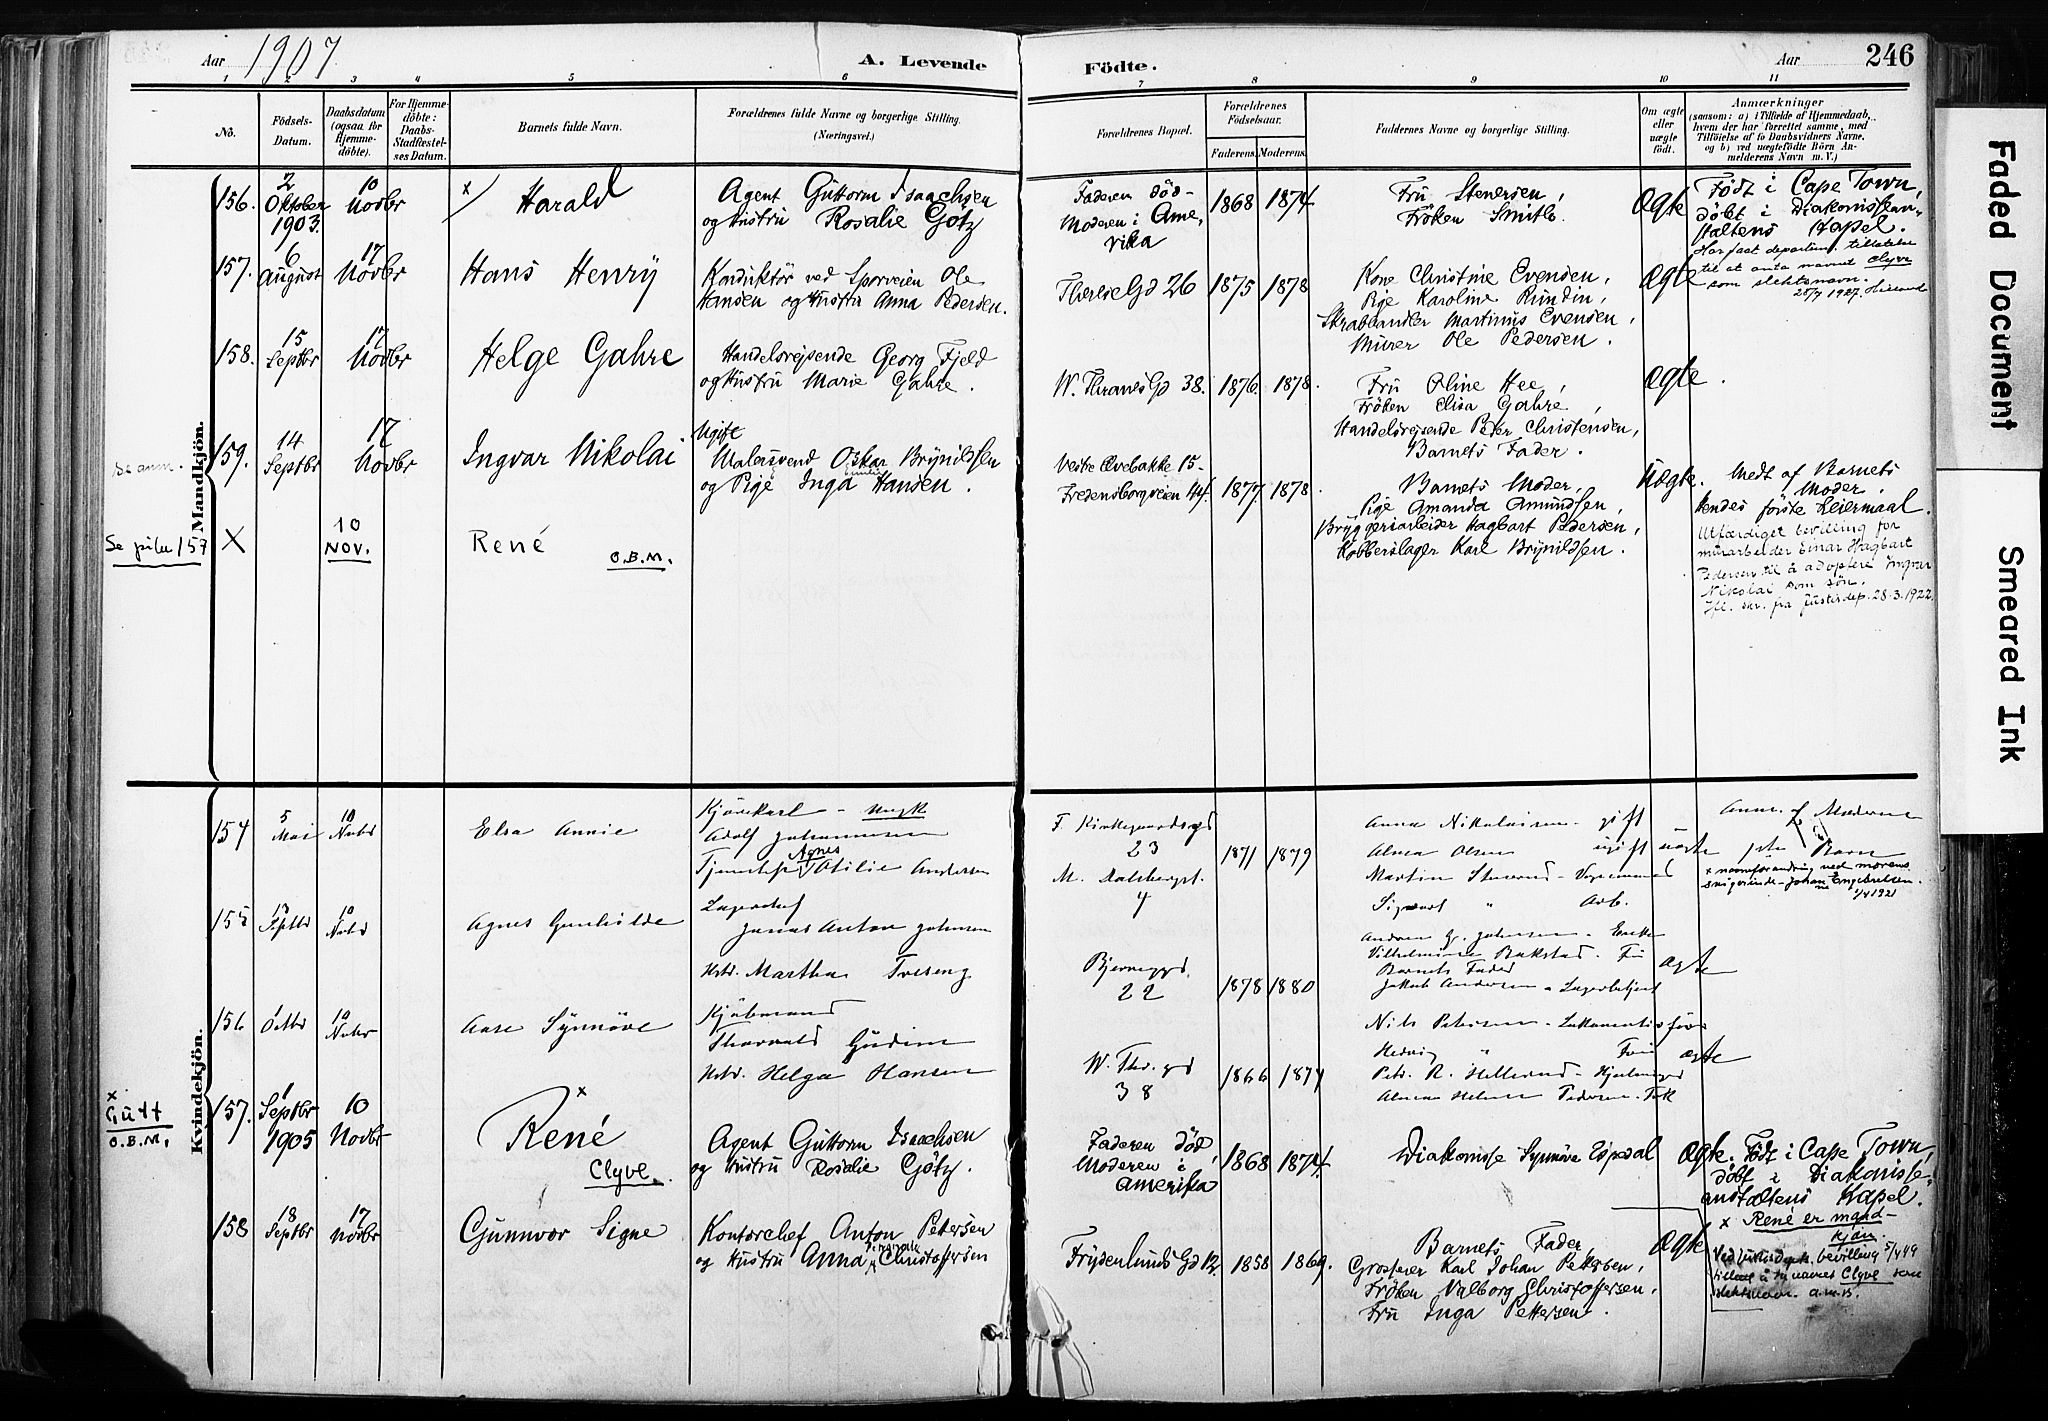 Aar 1907 A. Levende Fødte. Aar 246
1 2 3 4 5 6 7 8 9 10 11
No.
Fødsels-Datum.
Daabsdatum (ogsaa for Hjemmedøbte).
For Hjemmedøbte: Daabs-Stadfæstelses Datum.
Barnets fulde Navn.
Forældrenes fulde Navne og borgerlige Stilling. (Næringsvei.)
Forældrenes Bopæl.
Forældrenes Fødselsaar.
Faderens. Moderens.
Faddernes Navne og borgerlige Stilling.
Om ægte eller uægte født.
Anmærkninger
(saasom: a) i Tilfælde af Hjemmedaab,
hvem der har forrettet samme, med
Tilføielse af to Daabsvidners Navne,
og b) ved uægtefødte Børn An-
melderens Navn m. V.)
Mandkjøn.
156.
2 Oktober 1903.
10 Novbr
x Harald
Agent Guttorm Isaachsen
og Hustru Rosalie Götz
Faderen død-
Moderen i Ame-
rika
1868 1874
Fru Stenersen,
Frøken Smith.
Ægte
Født i Cape Town,
døbt i Diakonissean-
staltens Kapel.
Har faat departem. tillatelse
til at anta navnet Clyve
som slektsnavn.
25/7 1927.
157.
6 August
17 Novbr
Hans Henry
Konduktør ved Sporveien Ole
Hansen og Hustru Anna Pedersen.
Therese Gd 26
1875 1878
Kone Christine Evensen,
Pige Karoline Rundin,
Skrabhandler Martinus Evensen,
Murer Ole Pedersen.
Ægte
158.
15 Septbr
17 Novbr
Helge Gahre
Handelsrejsende Georg Fjeld
og Hustru Marie Gahre.
W. Thranes Gd 38.
1876. 1878.
Fru Oline Hee,
Frøken Elisa Gahre,
Handelsrejsende Peder Christensen,
Barnets Fader.
Ægte.
Se anm.
159.
14 Septbr
17 Novbr
Ingvar Nikolai
Ugift
Malersvend Oskar Brynildsen
og Pige Inga Hansen.
Vestre Elvebakke 15-
Fredensborgveien 44.
1877. 1878.
Barnets Moder,
Pige Amanda Amundsen,
Bryggeriarbeider Hagbart Pedersen,
Kobberslager Karl Brynildsen.
Uægte.
Medt af Barnets
Moder.
Hendes første Leiermaal.
Utfærdiget bevilling for
murarbeider Einar Hagbart
Pedersen til å adoptere Ingvar
Nikolai som søn.
Ifl. skr. fra justisdep. 28.3.1922.
Se piker 157
X
10 NOV.
René
O.B.M.
Kvindekjøn.
154
5 Mai
10 Novbr
Elsa Annie
Kjørekarl - Ungk
Adolf Johannesen
Tjenestepi Agnes Otilie Andersen
F. Kirkegaardsgd
23
M. Dalsbergst.
4
1871 1879
Anna Nikolaisen - gift
Alma Olsen ugift
Martin Stenerud -
Sigvart " Arb.
uægte
Anm. af Moderen
Barn
x navneforandring ved morens
Johan Engebretsen.
1/4 1921
155
13 Septbr
10 Novbr
Agnes Gunhilde
Jonas Anton Johnsen
Hstr. Martha Tveseng
Bjerneggd.
22
1878 1880
Andrea G. Johnsen - Enke
Vilhelmine Bakstad. Fru
Barnets Fader
Jakob Andersen - Lagerbetjent
ægte
156
1 Octbr
10 Novbr
Aase Synnøve
Kjøbmand
Thorvald Gudim
Hstr. Helga Hansen
W. Thr. gd
38
1866 1877
Nils Petersen - Lokomotivfører
Hedvig " Fru
Petr. R. Hellerud -
Alma Helene Pedersen. Frk
ægte
x
Gutt
O.B.M.
157.
1 Septbr 1905
10 Novbr
x
René
Clyve.
Agent Guttorm Isaachsen
og Hustru Rosalie Götz.
Faderen død,
Moderen i
Amerika
1868 1874.
Diakonisse Synnøve Espedal
Ægte.
Født i Cape Town,
døbt i Diakonisse-
anstaltens Kapel.
x René er mand-
kjøn.
Ved justisdepts. bevilling 5/4 49
tillatt å ta navnet Clyve som
slektsnavn. O.M.B.
158
18 Septbr
17 Novbr
Gunnvor Signe
Kontorchef Anton Pettersen
og Hustru Anna Christoffersen
Frydenlunds Gd 12.
1858 1869.
Barnets Fader,
Grosserer Karl Johan Pettersen,
Frøken Valborg Christoffersen,
Fru Inga Pettersen.
Ægte
Faded Document
Smeared Ink